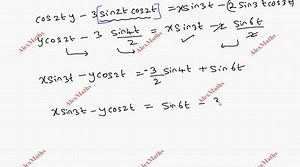 cos2t y - 3 sin2t cos2t = x sin3t - (2 sin3t cos3t)
y cos2t - 3 sin4t/2 = x sin3t - 2 sin6t/2
x sin3t - y cos2t = -3/2 sin4t + sin6t
x sin3t - y cos2t = sin6t - 3
AlexMaths
AlexMaths
AlexMaths
AlexMaths
AlexMaths
AlexMaths